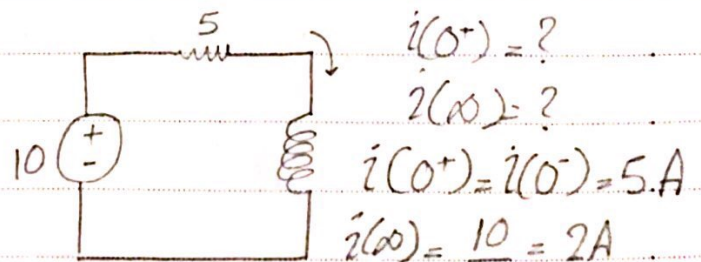 5
10
+
-
i(0⁺) = ?
i(∞) = ?
i(0⁺) = i(0⁻) = 5.A
i(∞) = 10 = 2A